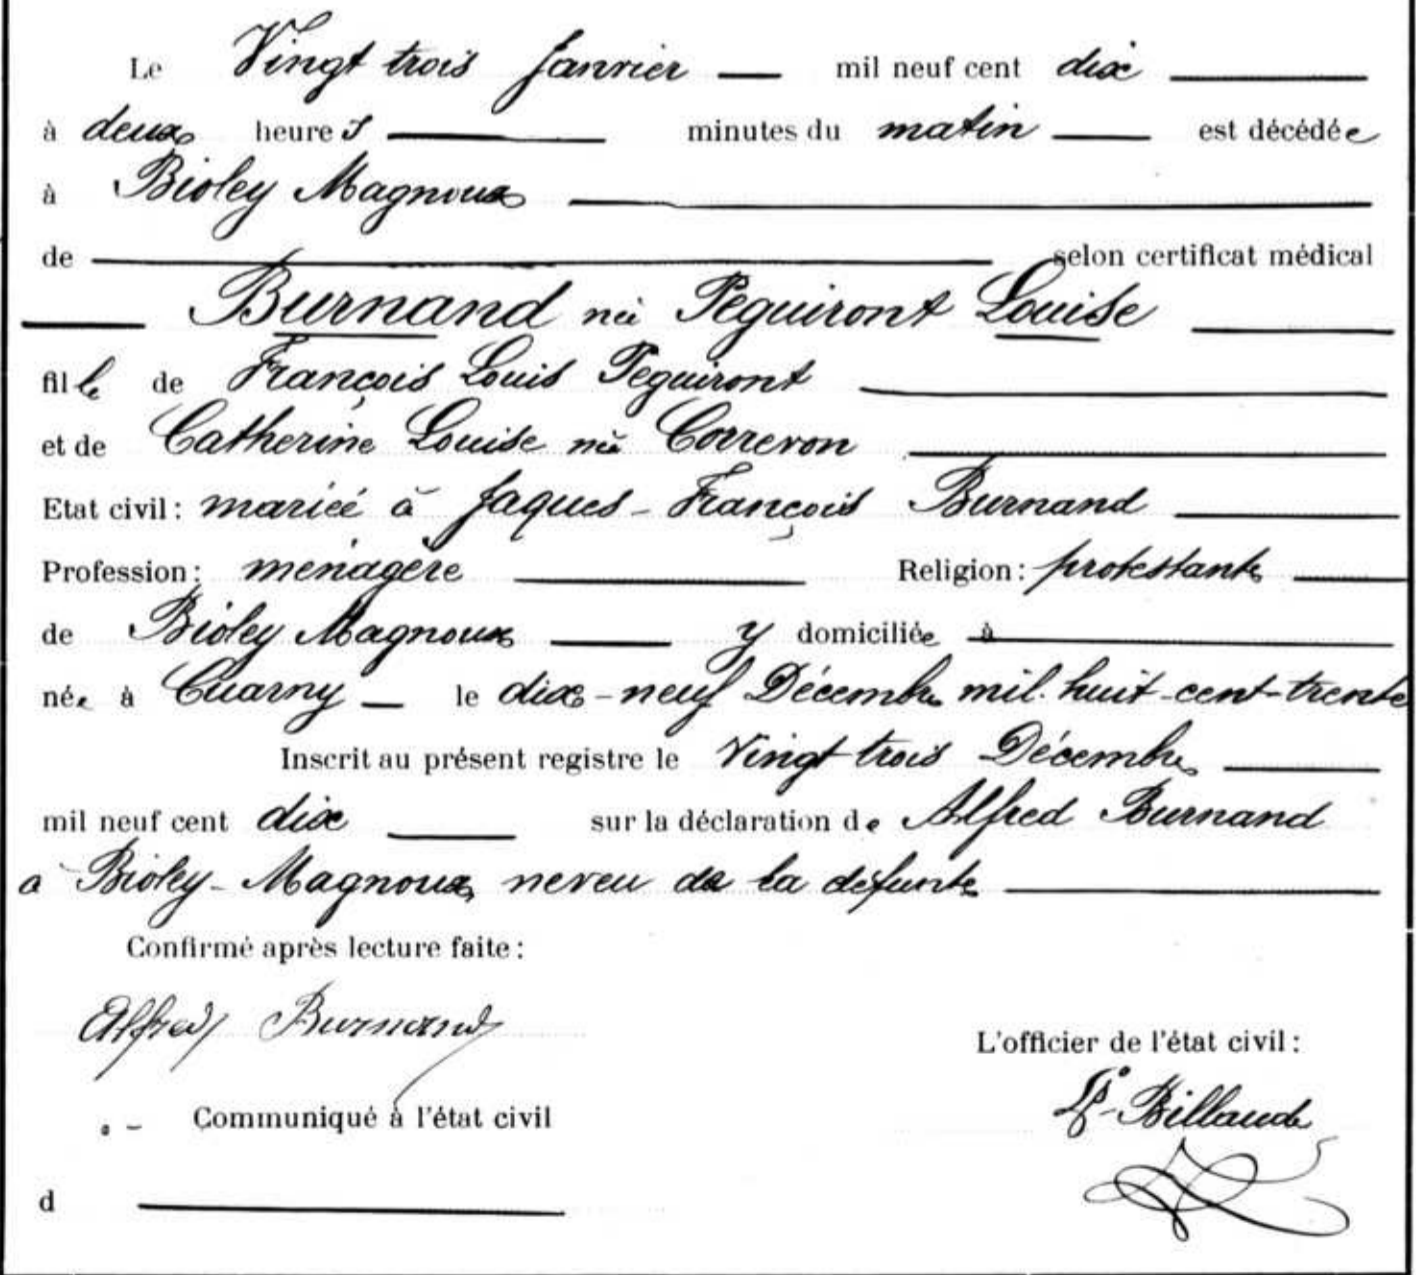 Le Vingt trois Janvier — mil neuf cent dix —
à deux heures — minutes du matin — est décédée
à Bioley Magnoux —
de — selon certificat médical
— Burnand née Peguiront Louise —
fille de François Louis Peguiront —
et de Catherine Louise née Correvon —
Etat civil : mariée à Jaques-François Burnand —
Profession : ménagère — Religion : protestante —
de Bioley Magnoux — y domiciliée à —
née à Cuarny — le dix-neuf Décembre mil huit-cent-trente
Inscrit au présent registre le Vingt trois Décembre —
mil neuf cent dix — sur la déclaration de Alfred Burnand
a Bioley-Magnoux, neveu de la défunte —
Confirmé après lecture faite :
Alfred Burnand
L'officier de l'état civil :
Billaud
Communiqué à l'état civil
d —